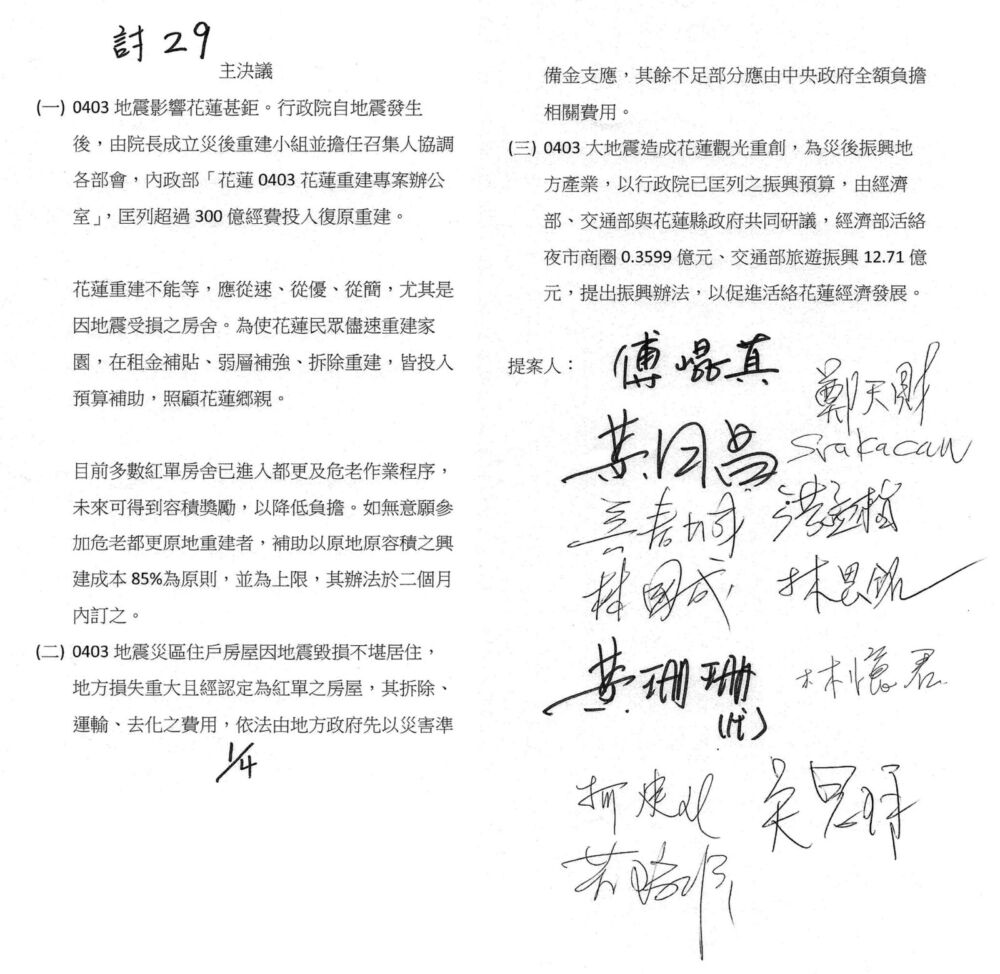 討29
主決議
(一) 0403 地震影響花蓮甚鉅。行政院自地震發生
後，由院長成立災後重建小組並擔任召集人協調
各部會，內政部「花蓮 0403 花蓮重建專案辦公
室」，匡列超過 300 億經費投入復原重建。
花蓮重建不能等，應從速、從優、從簡，尤其是
因地震受損之房舍。為使花蓮民眾儘速重建家
園，在租金補貼、弱層補強、拆除重建，皆投入
預算補助，照顧花蓮鄉親。
目前多數紅單房舍已進入都更及危老作業程序，
未來可得到容積獎勵，以降低負擔。如無意願參
加危老都更原地重建者，補助以原地原容積之興
建成本 85%為原則，並為上限，其辦法於二個月
內訂之。
(二) 0403 地震災區住戶房屋因地震毀損不堪居住，
地方損失重大且經認定為紅單之房屋，其拆除、
運輸、去化之費用，依法由地方政府先以災害準
1/4
備金支應，其餘不足部分應由中央政府全額負擔
相關費用。
(三) 0403 大地震造成花蓮觀光重創，為災後振興地
方產業，以行政院已匡列之振興預算，由經濟
部、交通部與花蓮縣政府共同研議，經濟部活絡
夜市商圈 0.3599 億元、交通部旅遊振興 12.71 億
元，提出振興辦法，以促進活絡花蓮經濟發展。
提案人：
傅崐萁
鄭天財
Sra Kacaw
黃國昌
林國成
林思銘
黃珊珊
(代)
林憶君
柯建銘
吳思瑤